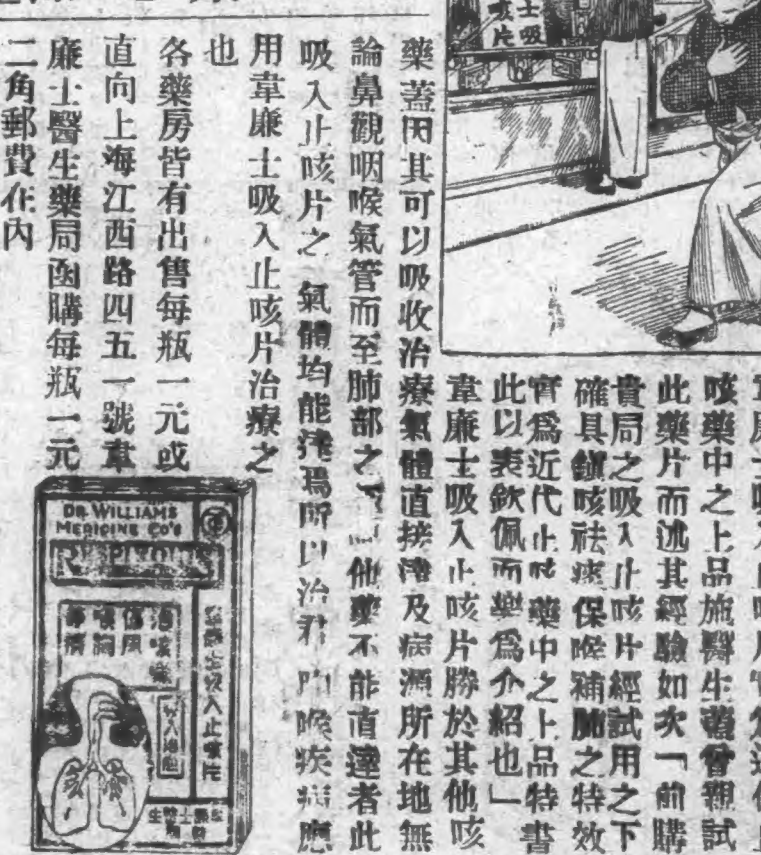 咳藥中之上品施醫生曾親試
此藥片而述其經驗如次「前購
貴局之吸入止咳片經試用之下
確具鎮咳祛痰保喉補肺之特效
實爲近代止咳藥中之上品特書
此以表欽佩而樂爲介紹也」
韋廉士吸入止咳片勝於其他咳
藥蓋因其可以吸收治療氣體直接達及病源所在地無
論鼻觀咽喉氣管而至肺部之他藥不能直達者此
吸入止咳片之氣體均能達焉所以治喉疾病應
用韋廉士吸入止咳片治療之
也
各藥房皆有出售每瓶一元或
直向上海江西路四五一號韋
廉士醫生藥局函購每瓶一元
二角郵費在內
士吸
咳片
DR. WILLIAMS
MEDICINE CO'S
韋廉士吸入止咳片